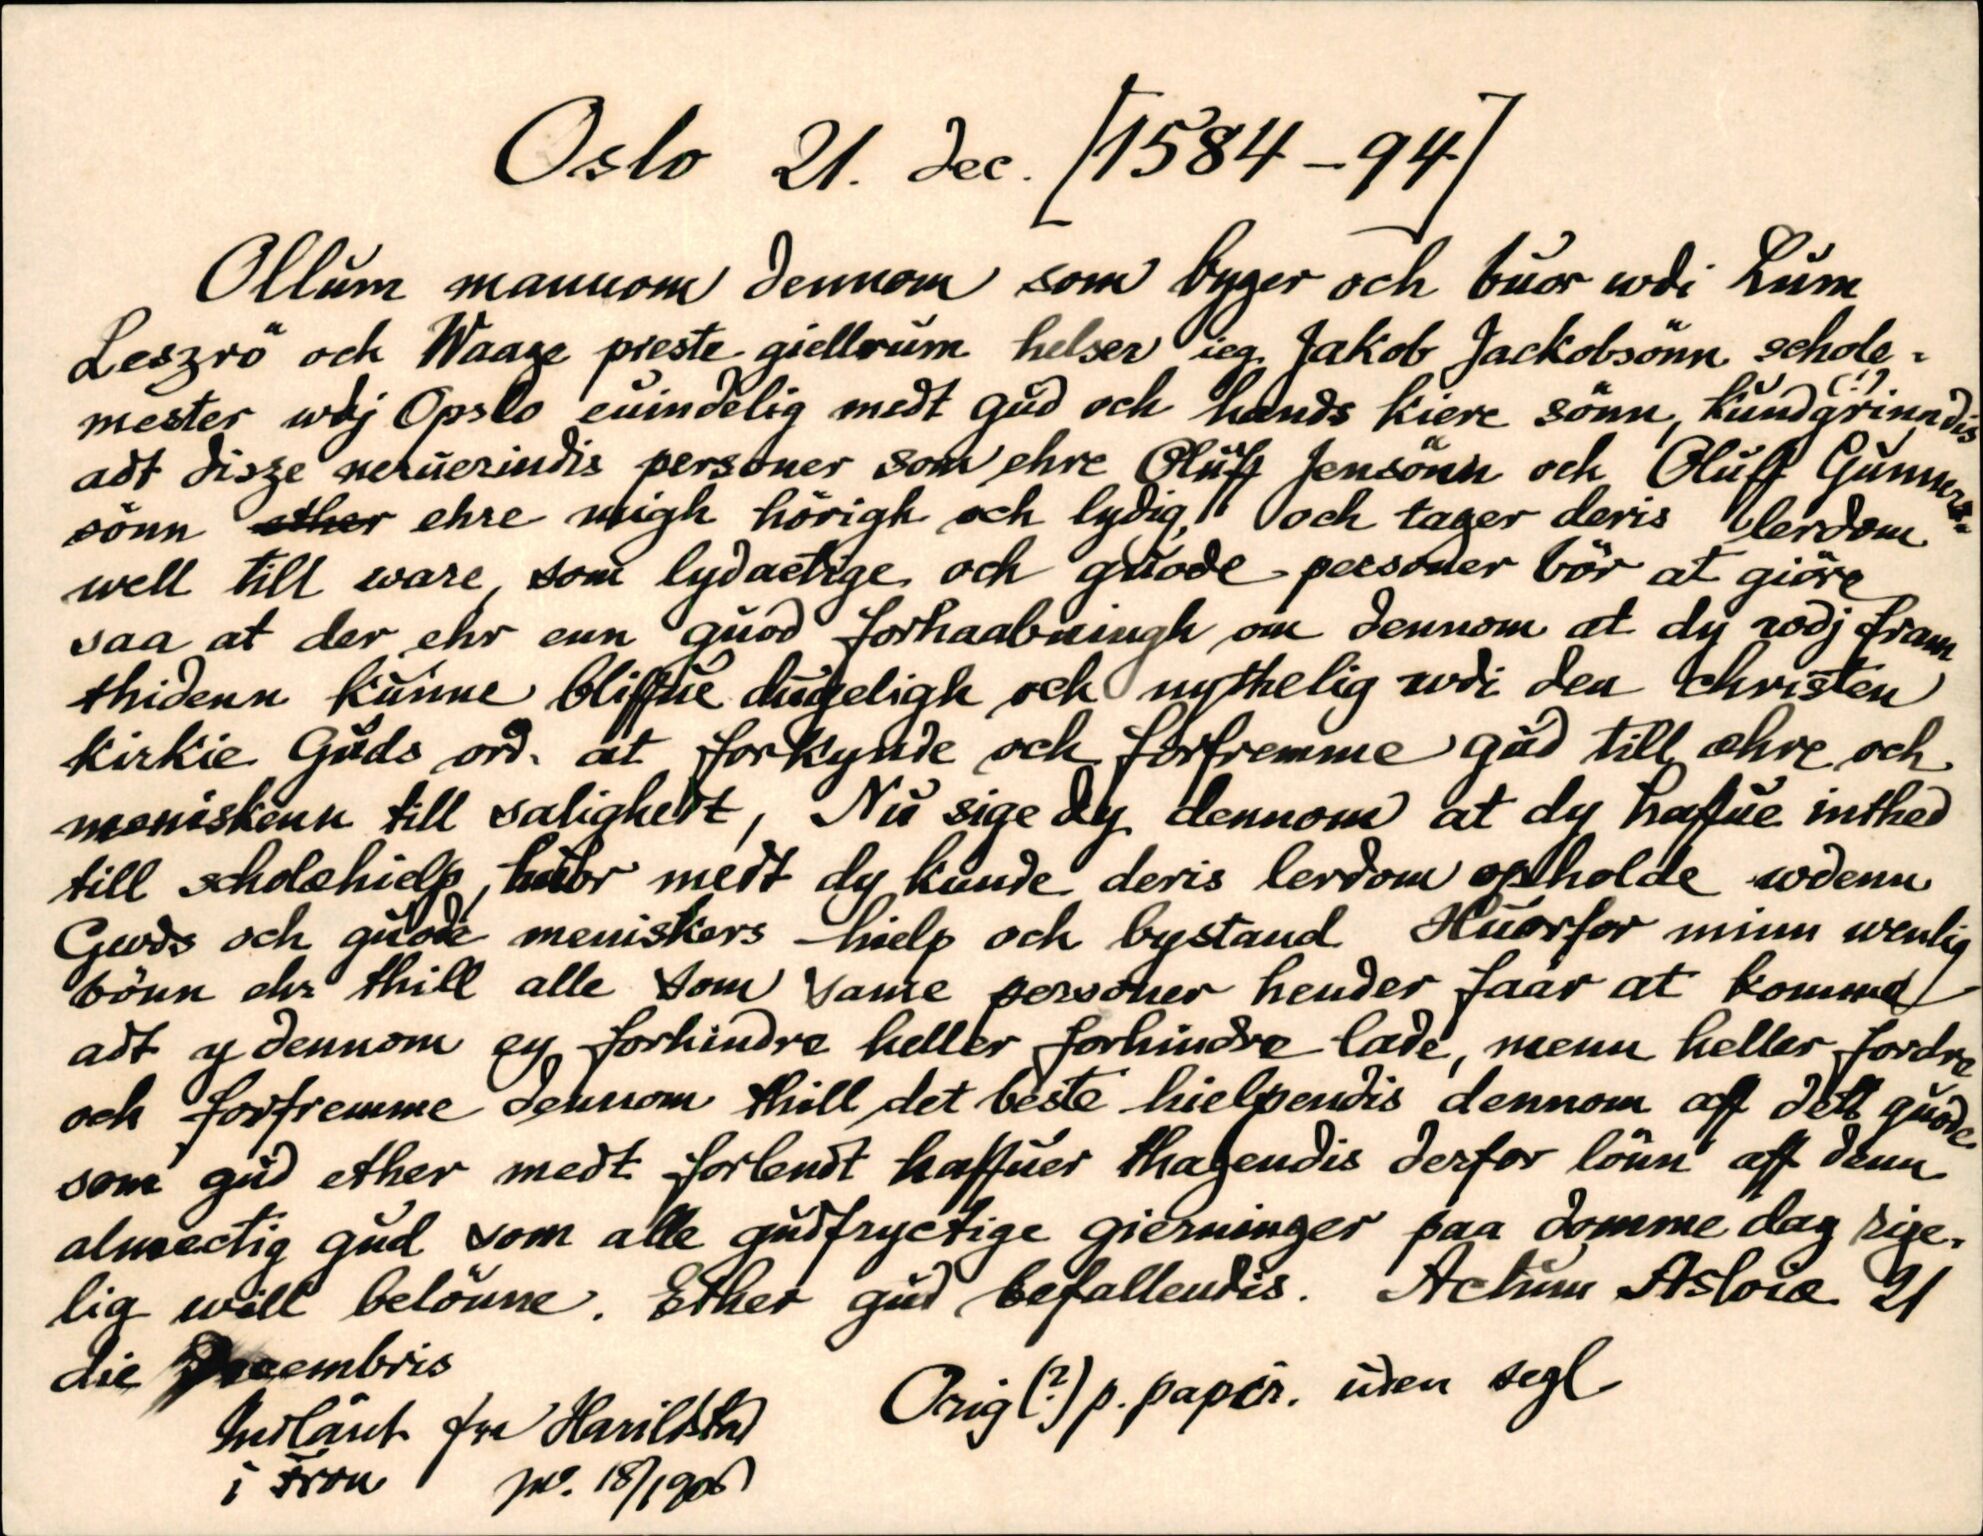 Oslo 21. dec. [1584-94]
Ollum mannom dennom som byger och buor wdi Lum
Leszrö och Waage preste giellrum helser ieg Jakob Jackobsönn schole-
mester wdj Opslo euindelig medt gud och hands kiere sönn, kundgrinndis (!)
adt disze neruerindis personer som ehre Oluff Jensönn och Oluff Gunners-
sönn ether ehre migh hörigh och lydig, och tager deris lerdom
well till ware, som lydactige och guode personer bör at giöre
saa at der ehr enn guod forhaabningh om dennom at dy wdj fram
thidenn kunne bliffue dugeligh och nythelig wdi den christen
kirkie Guds ord. at forkynde och forfremme gud till æhre och
meniskenn till salighedt, Nu sige dy dennom at dy haffue inthed
till scholehielp, huor medt dy kunde deris lerdom opholde wdenn
Gwds och guode meniskers hielp och bystand Huorfor minn wenlig
bönn ehr thill alle som same personer hender faar at komme
adt y dennom ey forhindre heller forhindre lade, menn heller fordre
och forfremme dennom thill det beste hielpendis dennom aff dett guode
som gud ether medt forlendt haffuer thagendis derfor lönn aff denn
almectig gud som alle gudfryctige gierninger paa domme dag rige-
lig will belönne. Ether gud befallendis. Actum Asloiæ 21
die Decembris
Indlånt fra Harildstad
i Fron
Orig (?) p. papir. uden segl